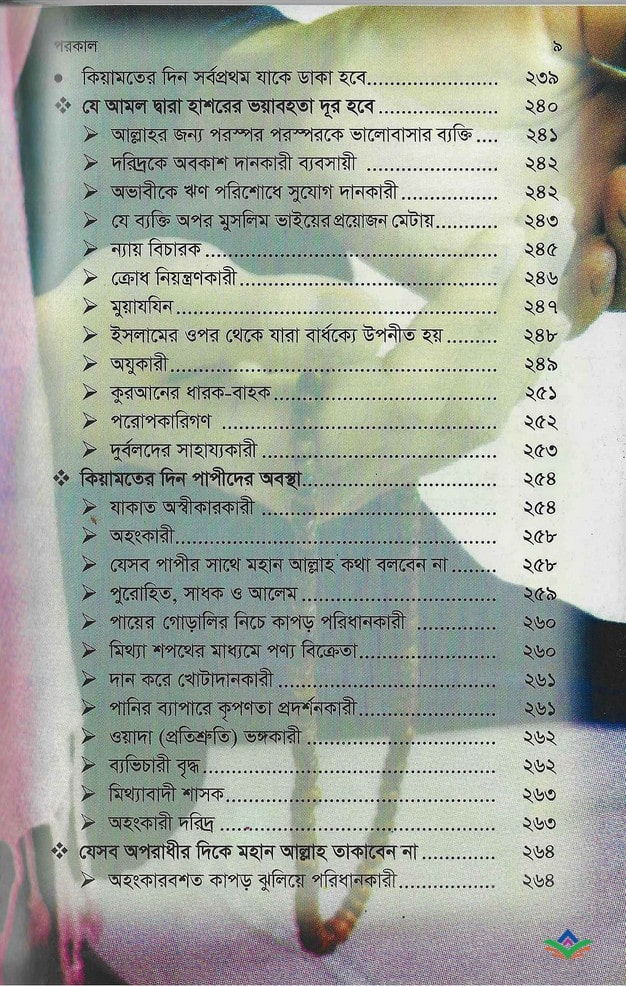 পরকাল ৯
● কিয়ামতের দিন সর্বপ্রথম যাকে ডাকা হবে.................... ২৩৯
❖ যে আমল দ্বারা হাশরের ভয়াবহতা দূর হবে .................. ২৪০
➢ আল্লাহর জন্য পরস্পর পরস্পরকে ভালোবাসার ব্যক্তি .... ২৪১
➢ দরিদ্রকে অবকাশ দানকারী ব্যবসায়ী .................... ২৪২
➢ অভাবীকে ঋণ পরিশোধে সুযোগ দানকারী ............... ২৪২
➢ যে ব্যক্তি অপর মুসলিম ভাইয়ের প্রয়োজন মেটায়.......... ২৪৩
➢ ন্যায় বিচারক ............................................. ২৪৫
➢ ক্রোধ নিয়ন্ত্রণকারী........................................ ২৪৬
➢ মুয়াযযিন ................................................. ২৪৭
➢ ইসলামের ওপর থেকে যারা বার্ধক্যে উপনীত হয় ......... ২৪৮
➢ অযুকারী.................................................. ২৪৯
➢ কুরআনের ধারক-বাহক................................... ২৫১
➢ পরোপকারিগণ .......................................... ২৫২
➢ দুর্বলদের সাহায্যকারী .................................... ২৫৩
❖ কিয়ামতের দিন পাপীদের অবস্থা............................. ২৫৪
➢ যাকাত অস্বীকারকারী .................................... ২৫৪
➢ অহংকারী................................................. ২৫৮
➢ যেসব পাপীর সাথে মহান আল্লাহ কথা বলবেন না ........ ২৫৮
➢ পুরোহিত, সাধক ও আলেম .............................. ২৫৯
➢ পায়ের গোড়ালির নিচে কাপড় পরিধানকারী ............. ২৬০
➢ মিথ্যা শপথের মাধ্যমে পণ্য বিক্রেতা..................... ২৬০
➢ দান করে খোটাদানকারী ................................. ২৬১
➢ পানির ব্যাপারে কৃপণতা প্রদর্শনকারী..................... ২৬১
➢ ওয়াদা (প্রতিশ্রুতি) ভঙ্গকারী ............................. ২৬২
➢ ব্যভিচারী বৃদ্ধ ............................................. ২৬২
➢ মিথ্যাবাদী শাসক.......................................... ২৬৩
➢ অহংকারী দরিদ্র .......................................... ২৬৩
❖ যেসব অপরাধীর দিকে মহান আল্লাহ তাকাবেন না ............ ২৬৪
➢ অহংকারবশত কাপড় ঝুলিয়ে পরিধানকারী............... ২৬৪